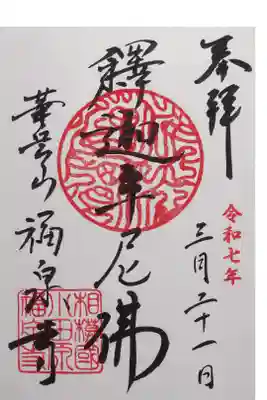 奉拝
令和七年
三月二十一日
釋迦牟尼佛
華岳山 福泉寺
相模國
小田原
福泉寺